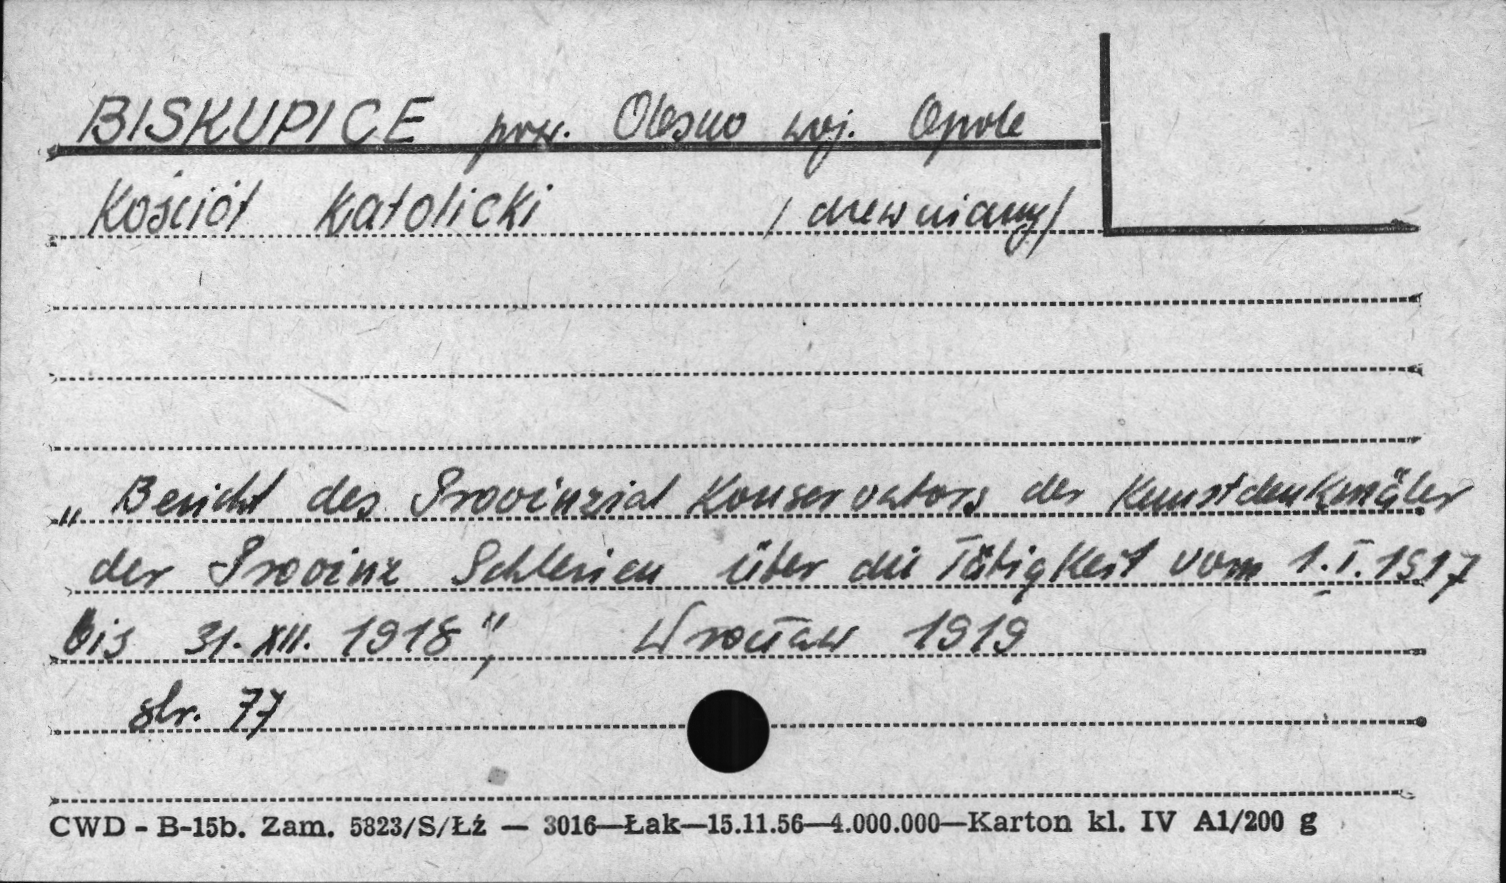 BISKUPICE pow. Olesno woj. Opole
Kościół Katolicki /drewniany/
„Bericht des Provinzial Konservators der Kunstdenkmäler
der Provinz Schlesien über die Tätigkeit vom 1.I.1917
bis 31.XII.1918", Wrocław 1919
str. 77
CWD - B-15b. Zam. 5823/S/Łź — 3016—Łak—15.11.56—4.000.000—Karton kl. IV A1/200 g